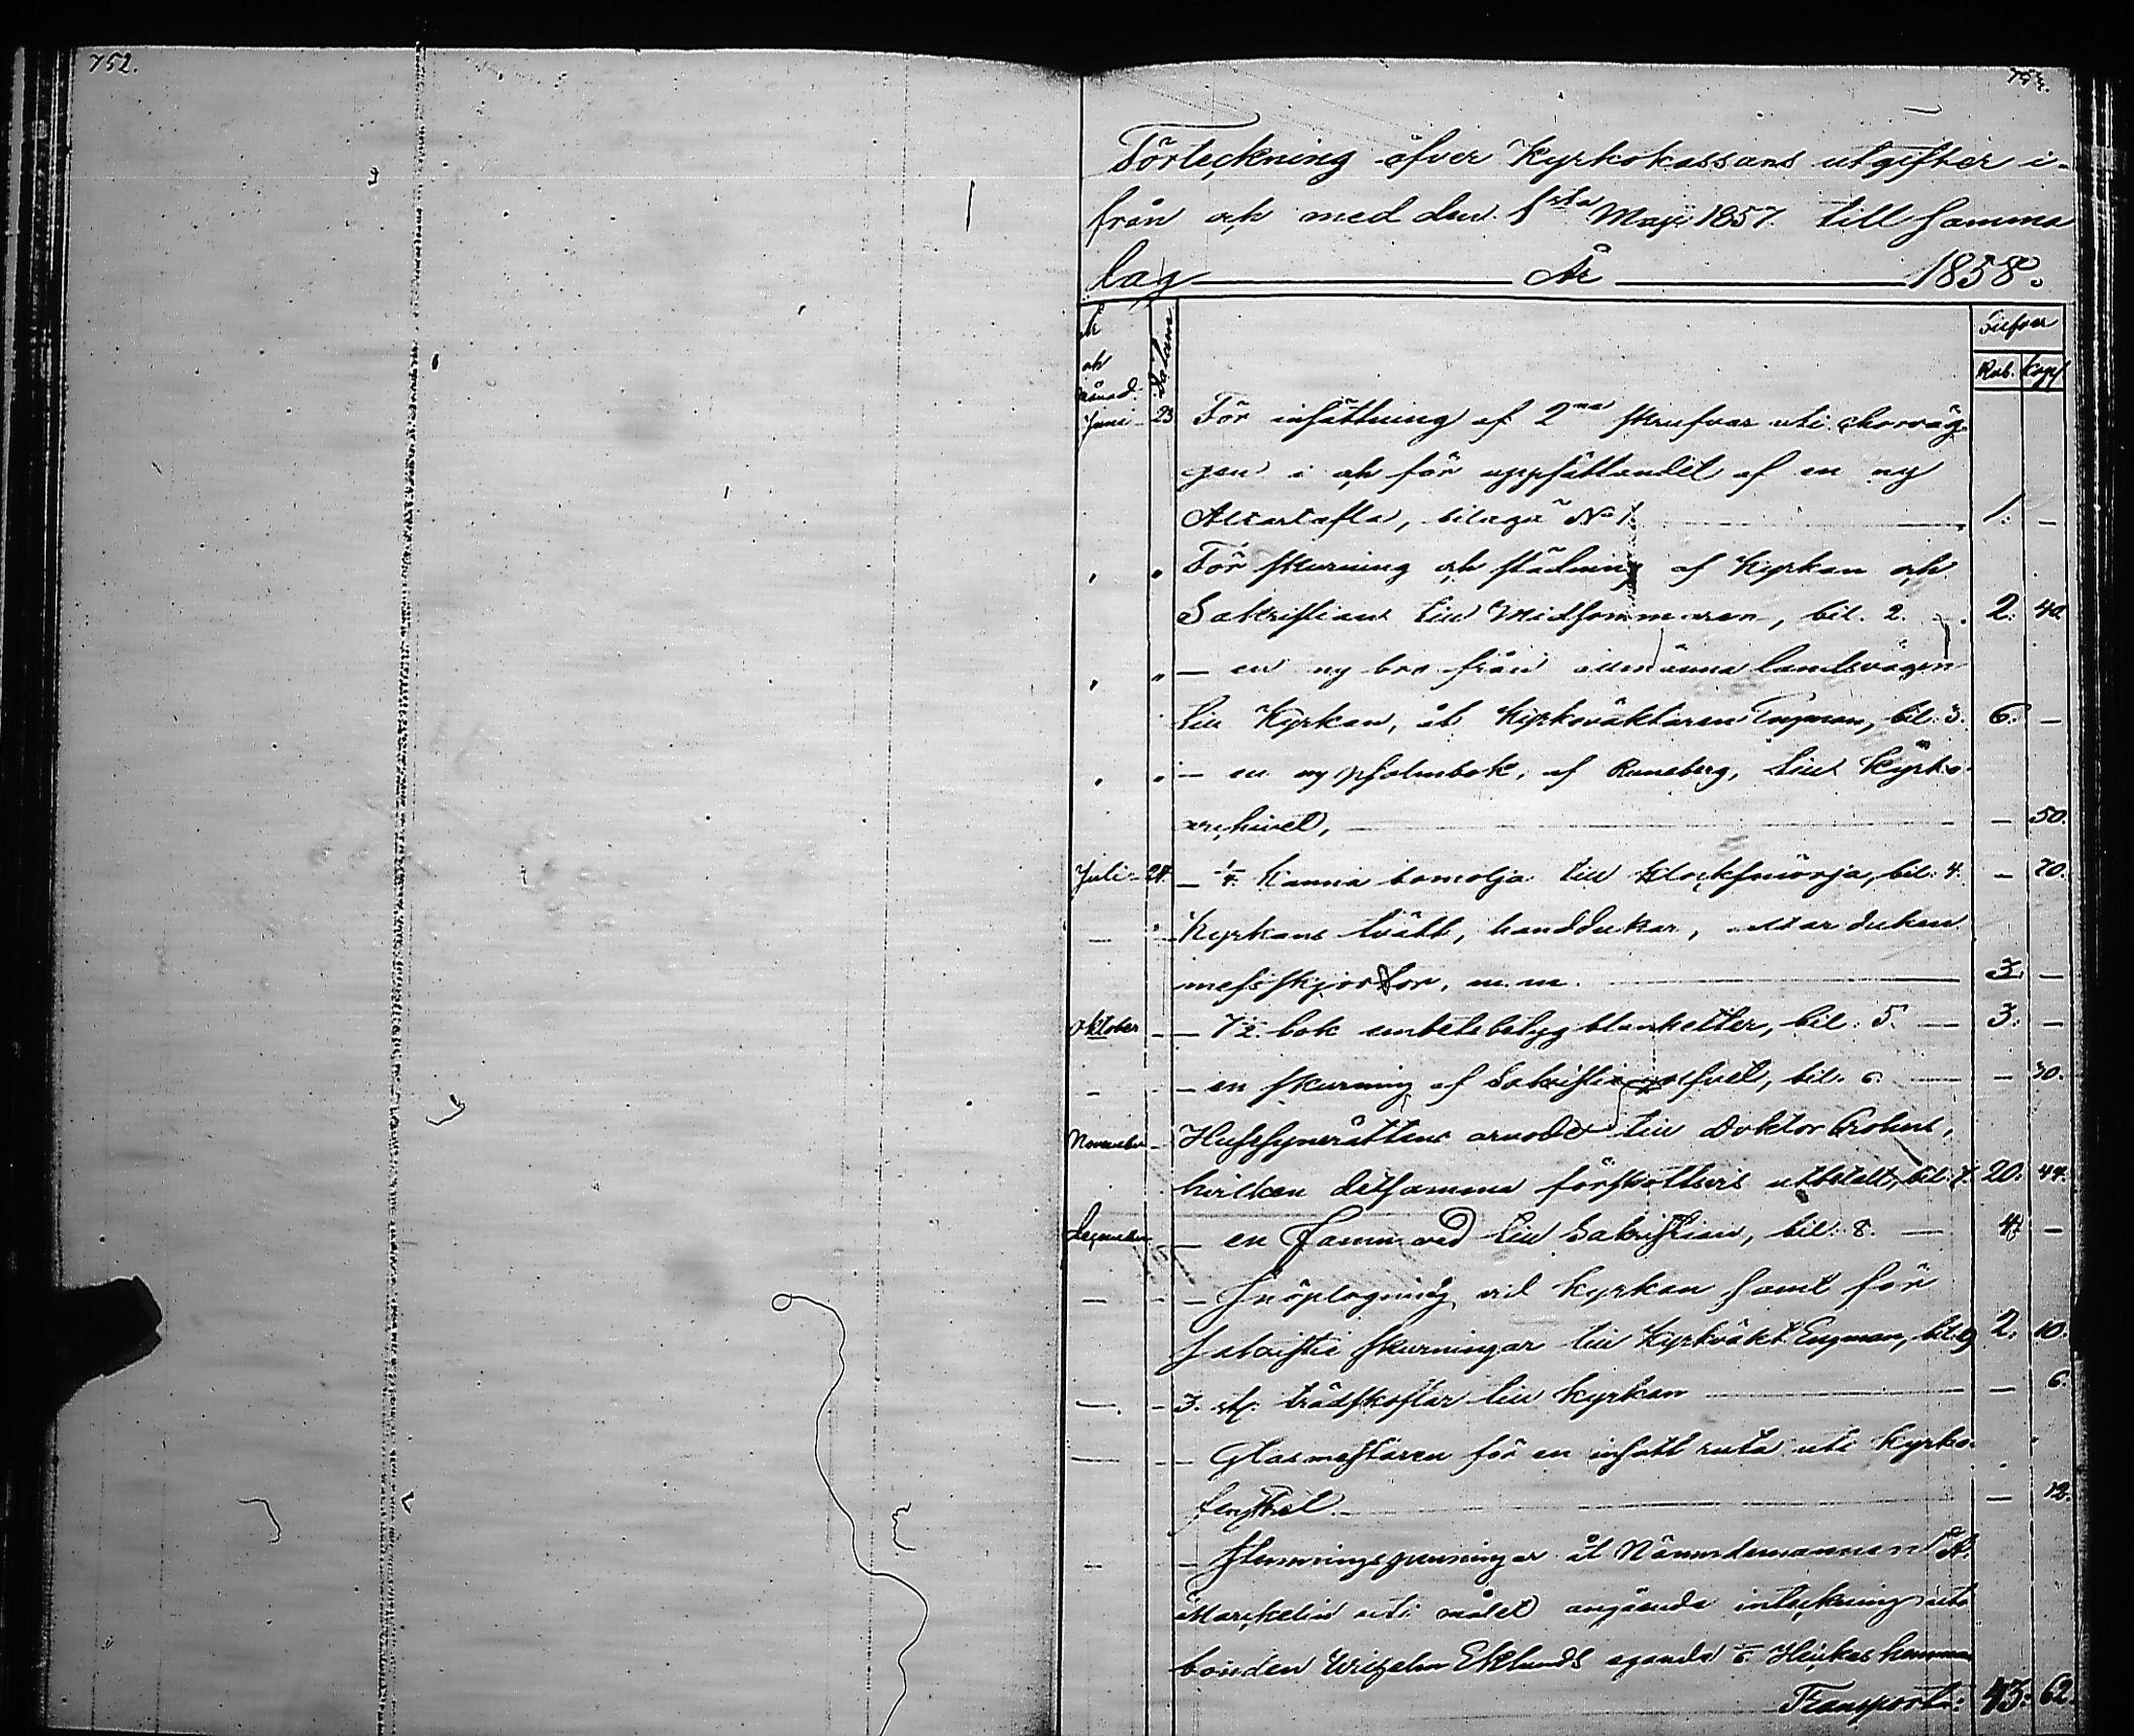 752.
753.
Förteckning öfver Kyrkokassans utgifter i-
från och med den 1sta Maji 1857 till samma
dag År 1858.
År och månad. Datum Silfver
Rub. Kop.
Juni 23 För insättning af 2ne skrufvar uti chorväg-
gen i och för uppsättandet af en ny
Altartafla, bilaga No 1. 1. —
" " För skurning och städning af Kyrkan och
Sakristian till Midsommaren, bil. 2. 2. 40
" " — en ny bro från allmänna landsvägen
till Kyrkan, åt Kyrkoväktaren Engman, bil. 3. 6. —
" " — en ny psalmbok, af Runeberg, till Kyrko-
archivet, — 50.
Juli 24. — 1/4 Kanna bomolja till Klocksmörja, bil. 4. — 70.
— " — Kyrkans tvätt, handdukar, altarduken
messskjortor, m.m. 3. —
Oktober — — 7 1/2 bok embetsbetyg blanketter, bil. 5. 3. —
— — en skurning af Sakristiegolfvet, bil. 6. — 30.
November — Husesynerättens arvode till Doktor
hvilken detsamma förskottsvis utbetalt, bil. 7. 20. 44.
December — en famn ved till Sakristian, bil. 8. — 4. —
— — — Snöplogning vid Kyrkan samt för
Sakristie skurningar till Kyrkväkt. Engman, bil. 9 2. 10.
— — 3. st. trädskoflar till Kyrkan — 6.
— — — Glasmästaren för en insatt ruta uti Kyrko-
fenstret. — 12.
— — Stämningspenningar åt Nämndemannen A.
Marckelin uti målet angående inteckning uti
bonden Wilhelm Eklunds egande 1/6 Heikas hemman
Transport: 43. 62.